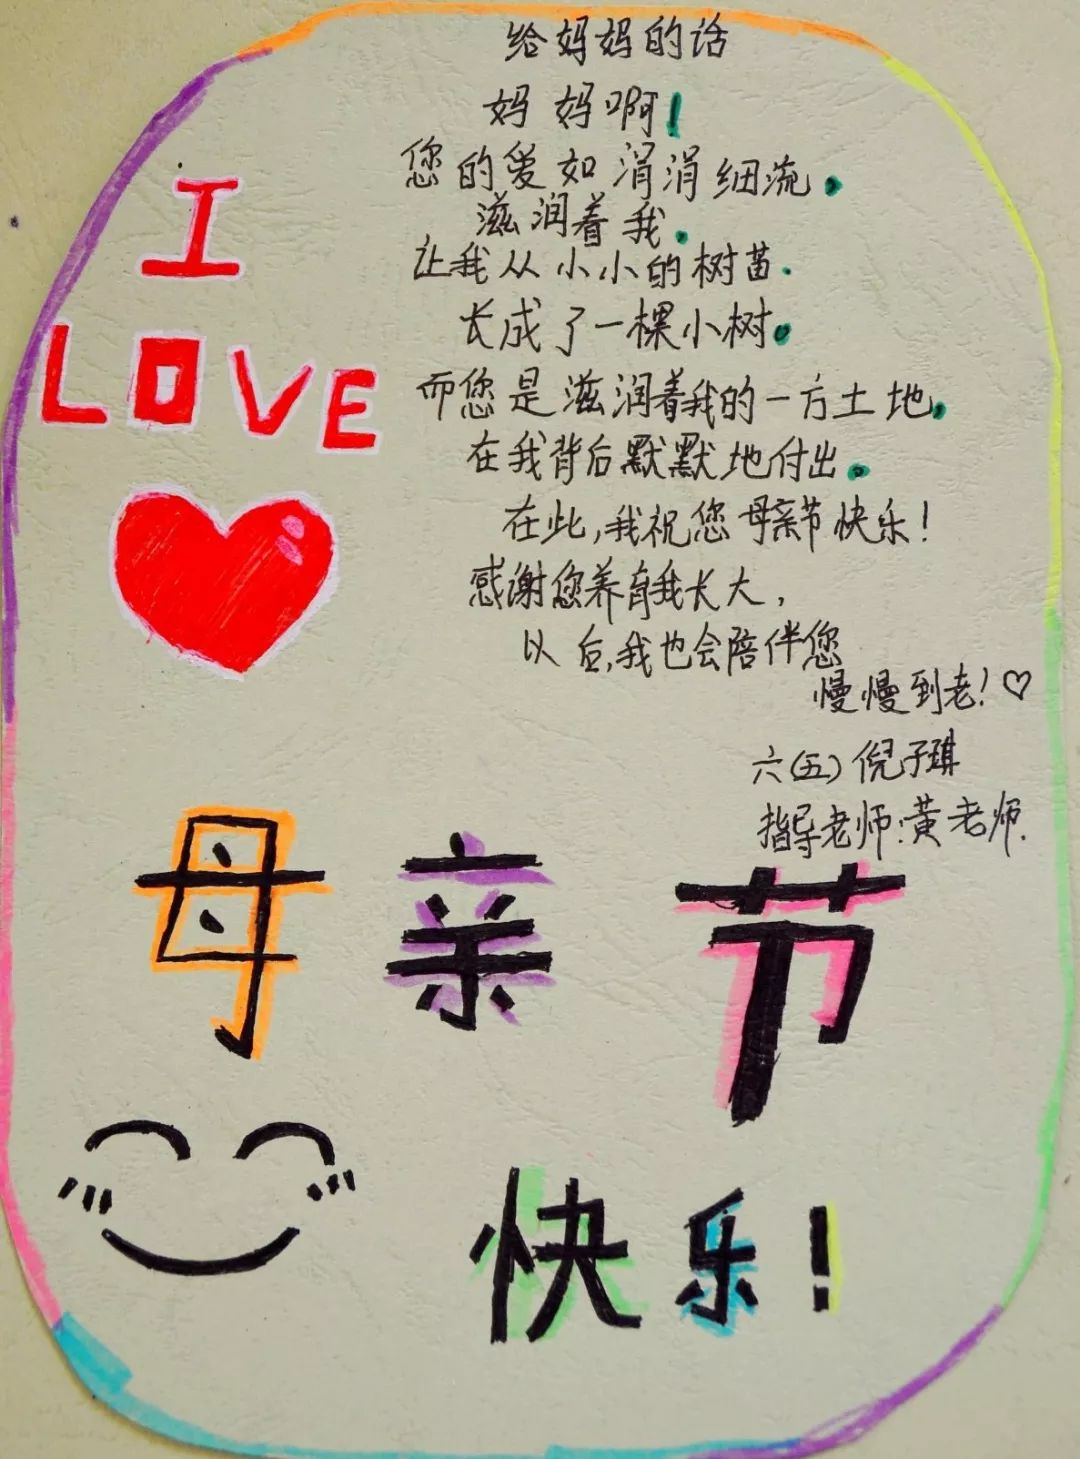 给妈妈的话
妈妈啊!
您的爱如涓涓细流,
滋润着我,
让我从小小的树苗.
长成了一棵小树。
而您是滋润着我的一方土地,
在我背后默默地付出。
在此,我祝您母亲节快乐!
感谢您养育我长大,
以后,我也会陪伴您
慢慢到老!♡
六(五)倪子琪
指导老师:黄老师.
I
LOVE
母亲节
快乐!